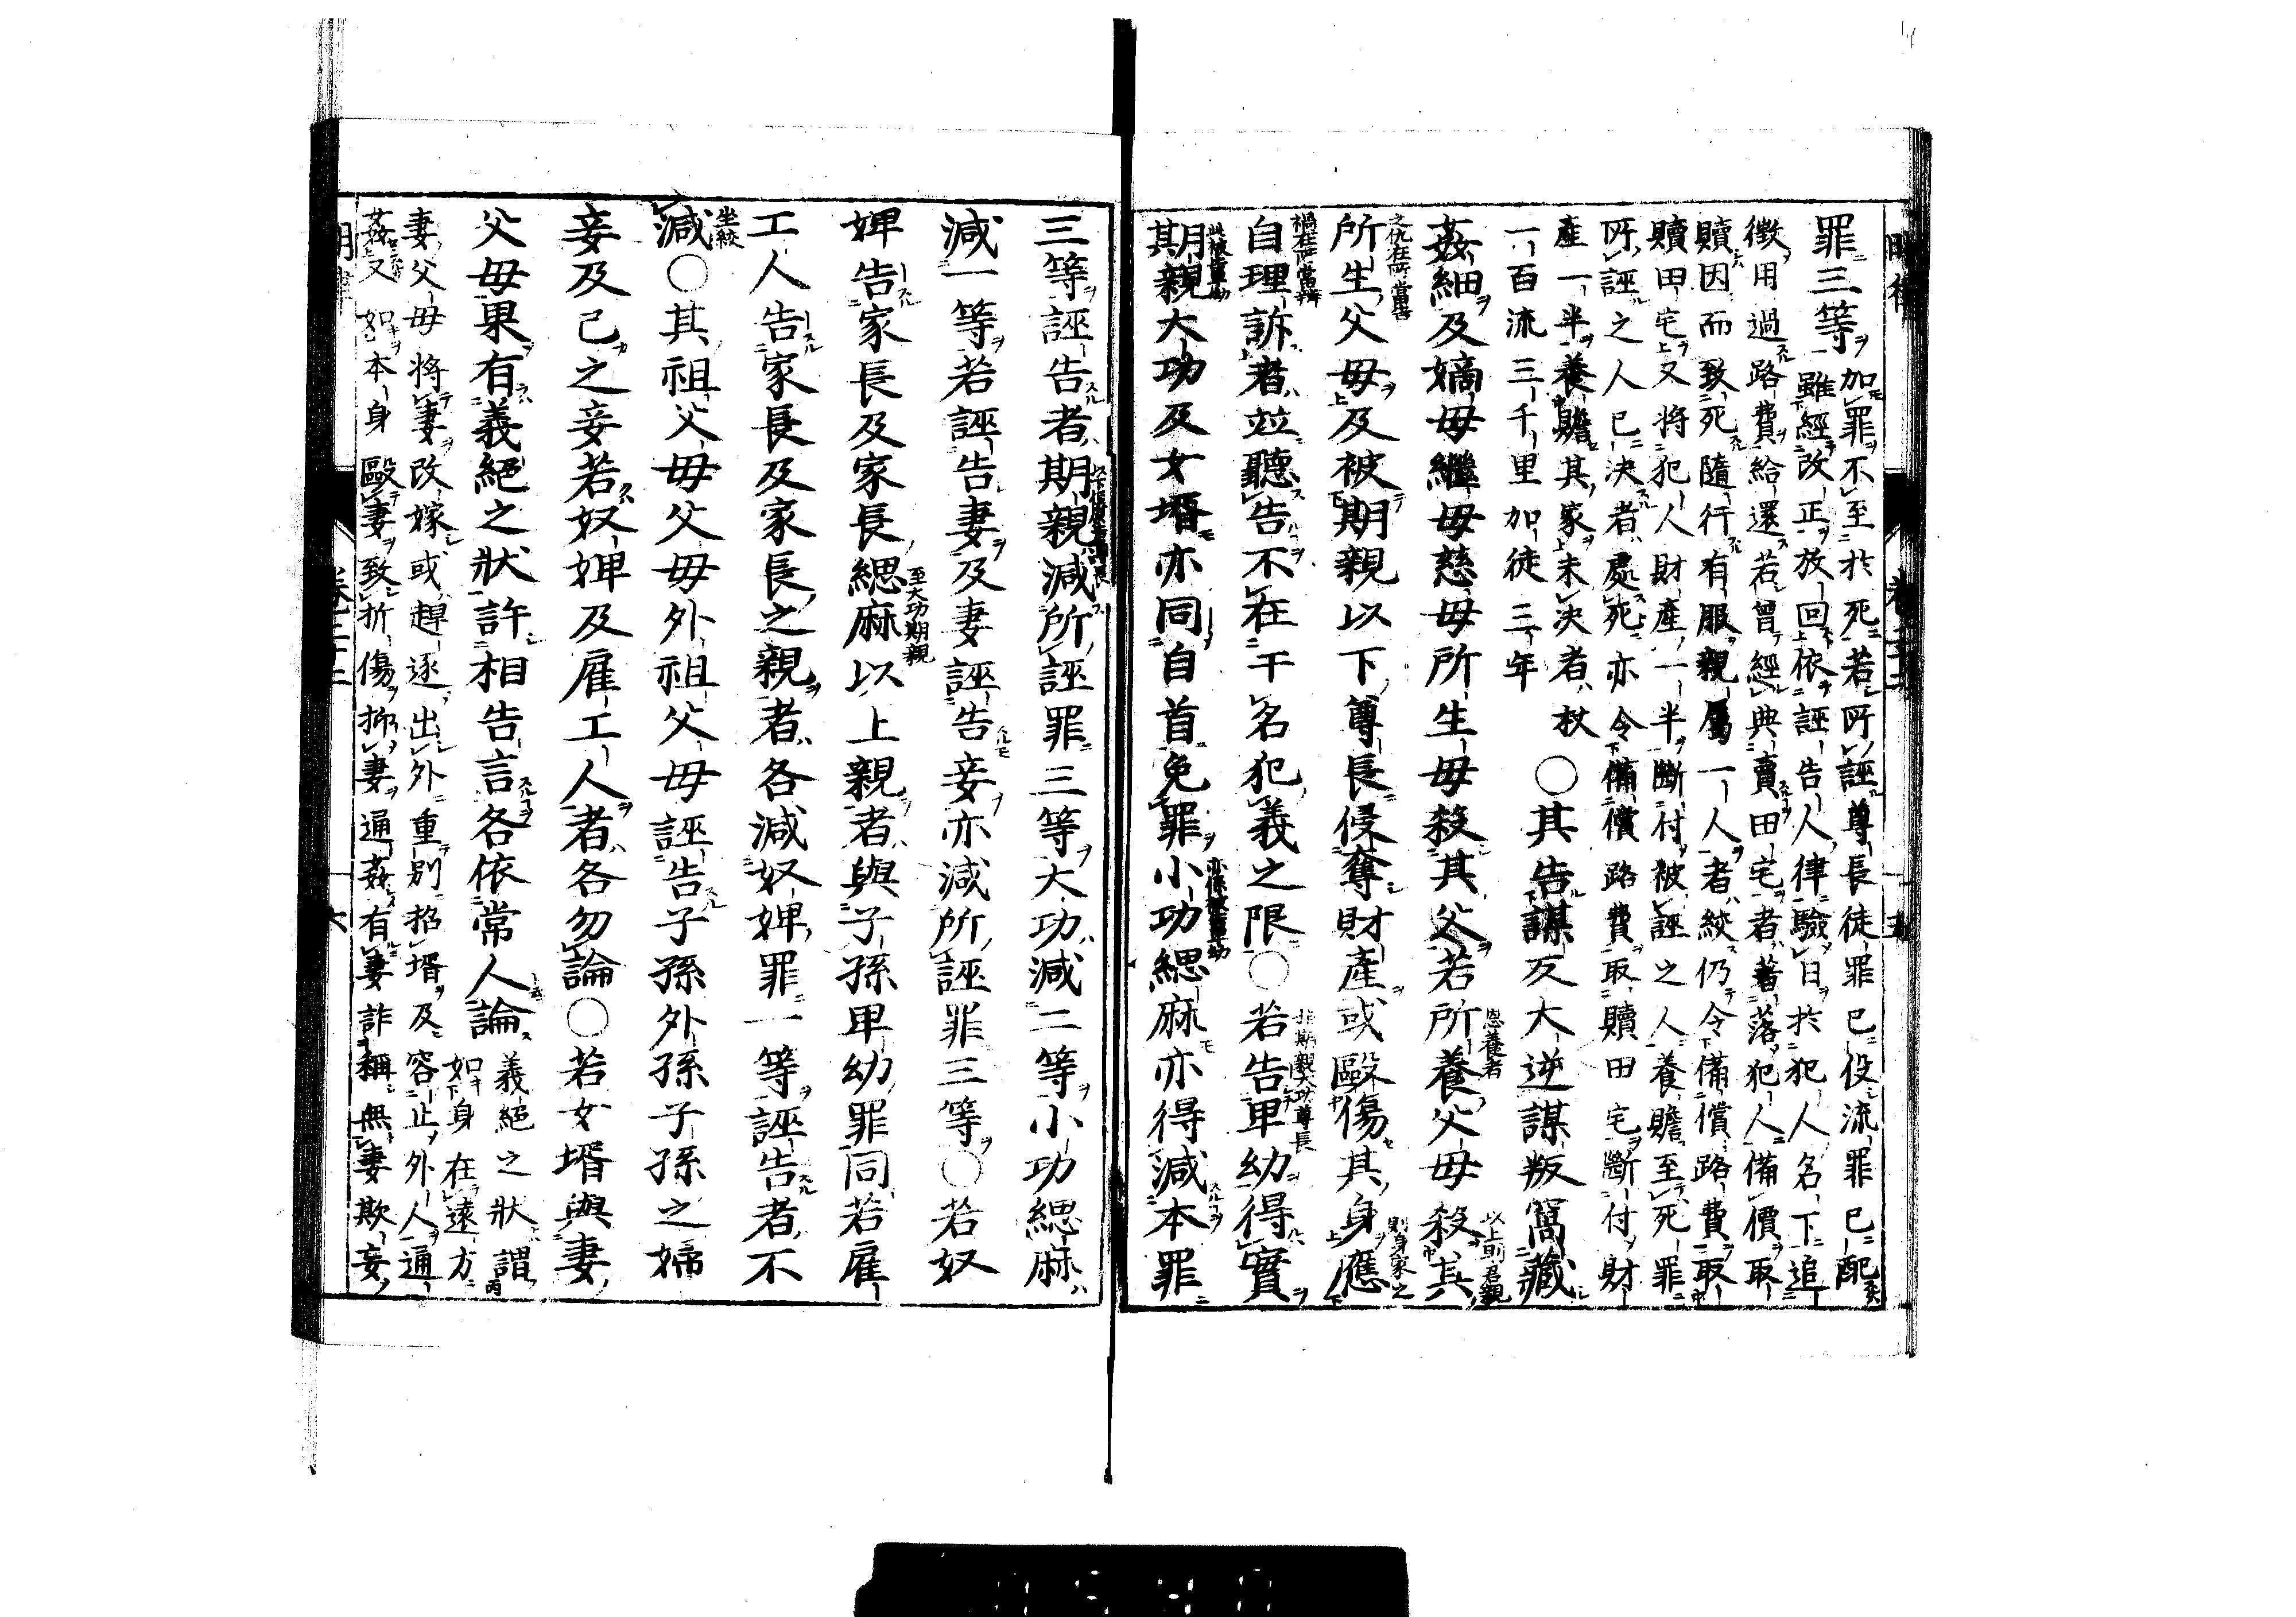 罪三等加罪不至於死若所誣尊長徒罪已役流罪已配
雖經改正放回依誣告人律驗日於犯人名下追
徴用過路費給還若曾經典賣田宅者著落犯人備價取
贖因而致死隨行有服親屬一人者絞仍令備償路費取
贖田宅又將犯人財產一半斷付被誣之人養贍至死罪
所誣之人已決者處死亦令備償路費取贖田宅斷付財
產一半養贍其家未決者杖
一百流三千里加徒三年
○其告謀反大逆謀叛窩藏
姦細及嫡母繼母慈母所生母殺其父若所養父母殺其
恩養者
以上則君親
之仇在所當告
所生父母及被期親以下尊長侵奪財產或毆傷其身應
則身家之
禍在所當辨
自理訴者並聽告不在干名犯義之限○若告卑幼得實
非期親大功尊長
此被卑幼
期親大功及女壻亦同自首免罪小功緦麻亦得減本罪
亦係被卑幼
三等誣告者期親減所誣罪三等大功減二等小功緦麻
減一等若誣告妻及妻誣告妾亦減所誣罪三等○若奴
婢告家長及家長緦麻以上親者與子孫卑幼罪同若雇
至大功期親
工人告家長及家長之親者各減奴婢罪一等誣告者不
坐絞
減○其祖父母父母外祖父母誣告子孫外孫子孫之婦
妾及己之妾若奴婢及雇工人者各勿論○若女壻與妻
父母果有義絕之狀許相告言各依常人論
義絕之狀謂
如身在遠方
妻父母將妻改嫁或趕逐出外重別招壻及容止外人通
姦又如本身毆妻致折傷抑妻通姦有妻詐稱無妻欺妄